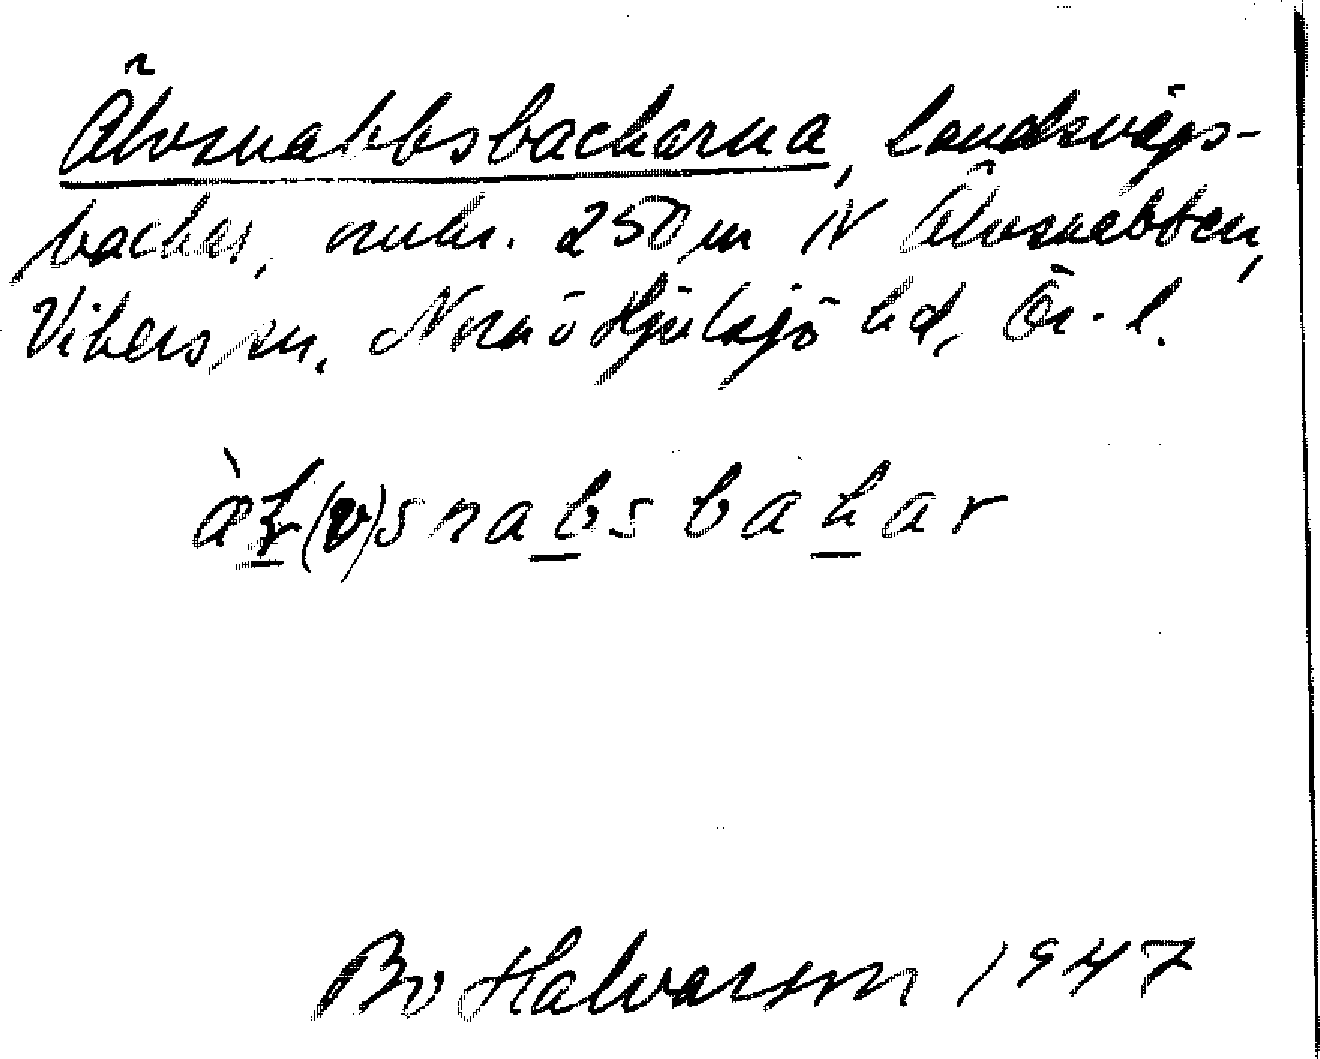 Älvsnabbsbackarna, landsvägs-
backar, omkr. 250 m N Älvsnabben,
Vikers sn, Nora o Hjulsjö hd, Ör. l.
àl(v)snabsbakar
Bo Halvarson 1947